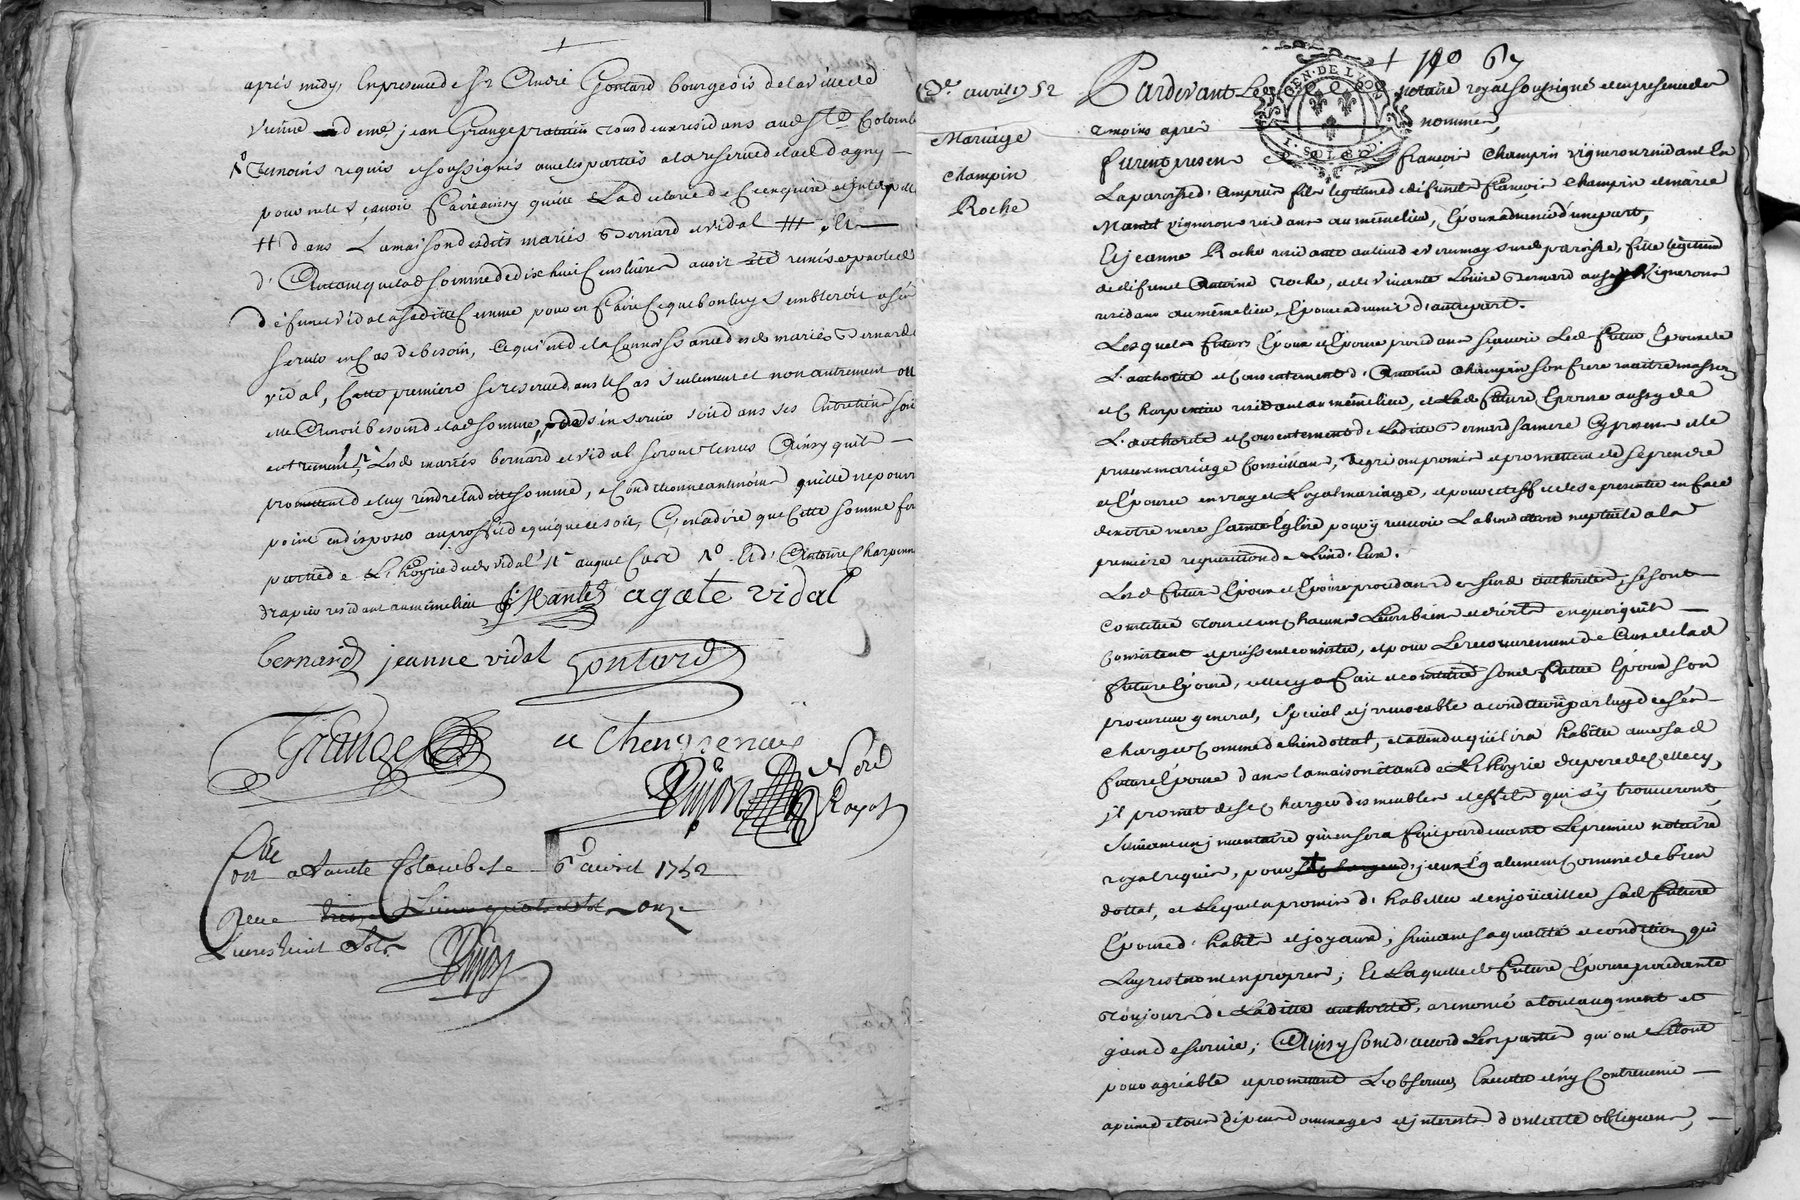 après midy, En presence de Sr André Gontard bourgeois de la ville de
vienne et de me jean Grange praticien tous deux residans aud Ste Colombe
temoins requis et soussignés avec les parties a la reserve de lad d'agny
pour ne le sçavoir faire ainsy qu'elle La declaré de ce enquise et Interpellée
# dans La maison desdits mariés Bernard et vidal # Et
d'autant que lad somme de dix huit Cens livres avoit été remise par led
defunt vidal a sa ditte femme pour en faire Ce que bon luy sembleroit
servir en Cas de besoin, Ce qui est de la Connoissance desd mariés Bernard et
vidal, Cette premiere se reserve dans le Cas seulement et non autrement ou
elle auroit besoin de lad somme, pour s'en servir soit dans ses Entretiens soit
autrement, Lesd mariés bernard et vidal seront tenus Ainsy qu'ils
promettent de luy rendre laditte somme, a Condition neantmoins qu'elle ne pourra
point en disposer au proffit de qui que ce soit, C'est a dire que Cette somme fera
partie de L'hoyrie dud vidal auquel Cas Et d'Antoine Charpenn
drapier residant au même lieu J. Mantel agate vidal
bernard jeanne vidal Gontard
Grange
Dujon Nore Royal
Con.lle a Sainte Colombe le 6e avril 1752
Receu onze
Livres huit Sols
Dujon
+ No 67
GEN. DE LYON
avril 52
Mariage
Champin
Roche
Pardevant Le notaire royal soussigné et en presence des
temoins après nommes,
furent presens françois Champin vigneron residant En
La paroisse d'Ampuis fils legitime de defunt François Champin et marie
Mantel vignerons residans au même lieu, Epoux advenir d'une part,
Et jeanne Roche residante au lieu de Verenay susd paroisse, fille legitime
de defunt Antoine Roche, et de vivante Louise Bernard aussy Vignerons
residans au même lieu, Epouse advenir d'autre part.
Lesquels futurs Epoux et Epouse procedans sçavoir Led futur Epoux de
L'authorité et Consentement d'Antoine Champin son frere maitre masson
et Charpentier residant au même lieu, et Lad future Epouse aussy de
L'authorité et Consentement de Laditte Bernard sa mere Cy presens et le
present mariage Conseillans, de gré ont promis et promettent de se prendre
et Epouser en vray et Loyal mariage, et pour cet effet de se presenter en face
de nôtre mere Sainte Eglise pour y recevoir La benediction nuptiale a la
premiere requisition de L'un d'Eux.
Lesd futur Epoux et Epouse procedans de susd authorité, se sont
Constitué tous et un Chacuns Leurs biens et droits en quoy qu'ils
Consistent et puissent consister, et pour Le recouvrement de Ceux de lad
future Epouse, elle a fait et constitué sond futur Epoux son
procureur general, special et irrevocable a condition par luy de s'en
Charger Comme de bien dottal, et attendu qu'il ira habiter avec sad
future Epouse dans la maison étant de L'hoyrie du pere de Cellecy,
il promet de se Charger des meubles et effets qui s'y trouveront,
suivant un inventaire qui en sera fait par devant Le premier notaire
royal requis, pour jceux Egalement Comme de bien
dottal, et Lequel a promis d'habiller et enjoüailler sad future
Epouse d'habits et joyaux, suivant sa qualité et condition qui
Luy resteront en propres; Et Laquelle de future Epouse procedante
toujours de Laditte authorité, a renoncé a tout augment et
gain de survie; Ainsy sont d'accord Les parties qui ont Le tout
pour agréable et promettent L'observer, Executer et n'y Contrevenir
a peine de tous depens dommages et interests d'ont elle obligeans,